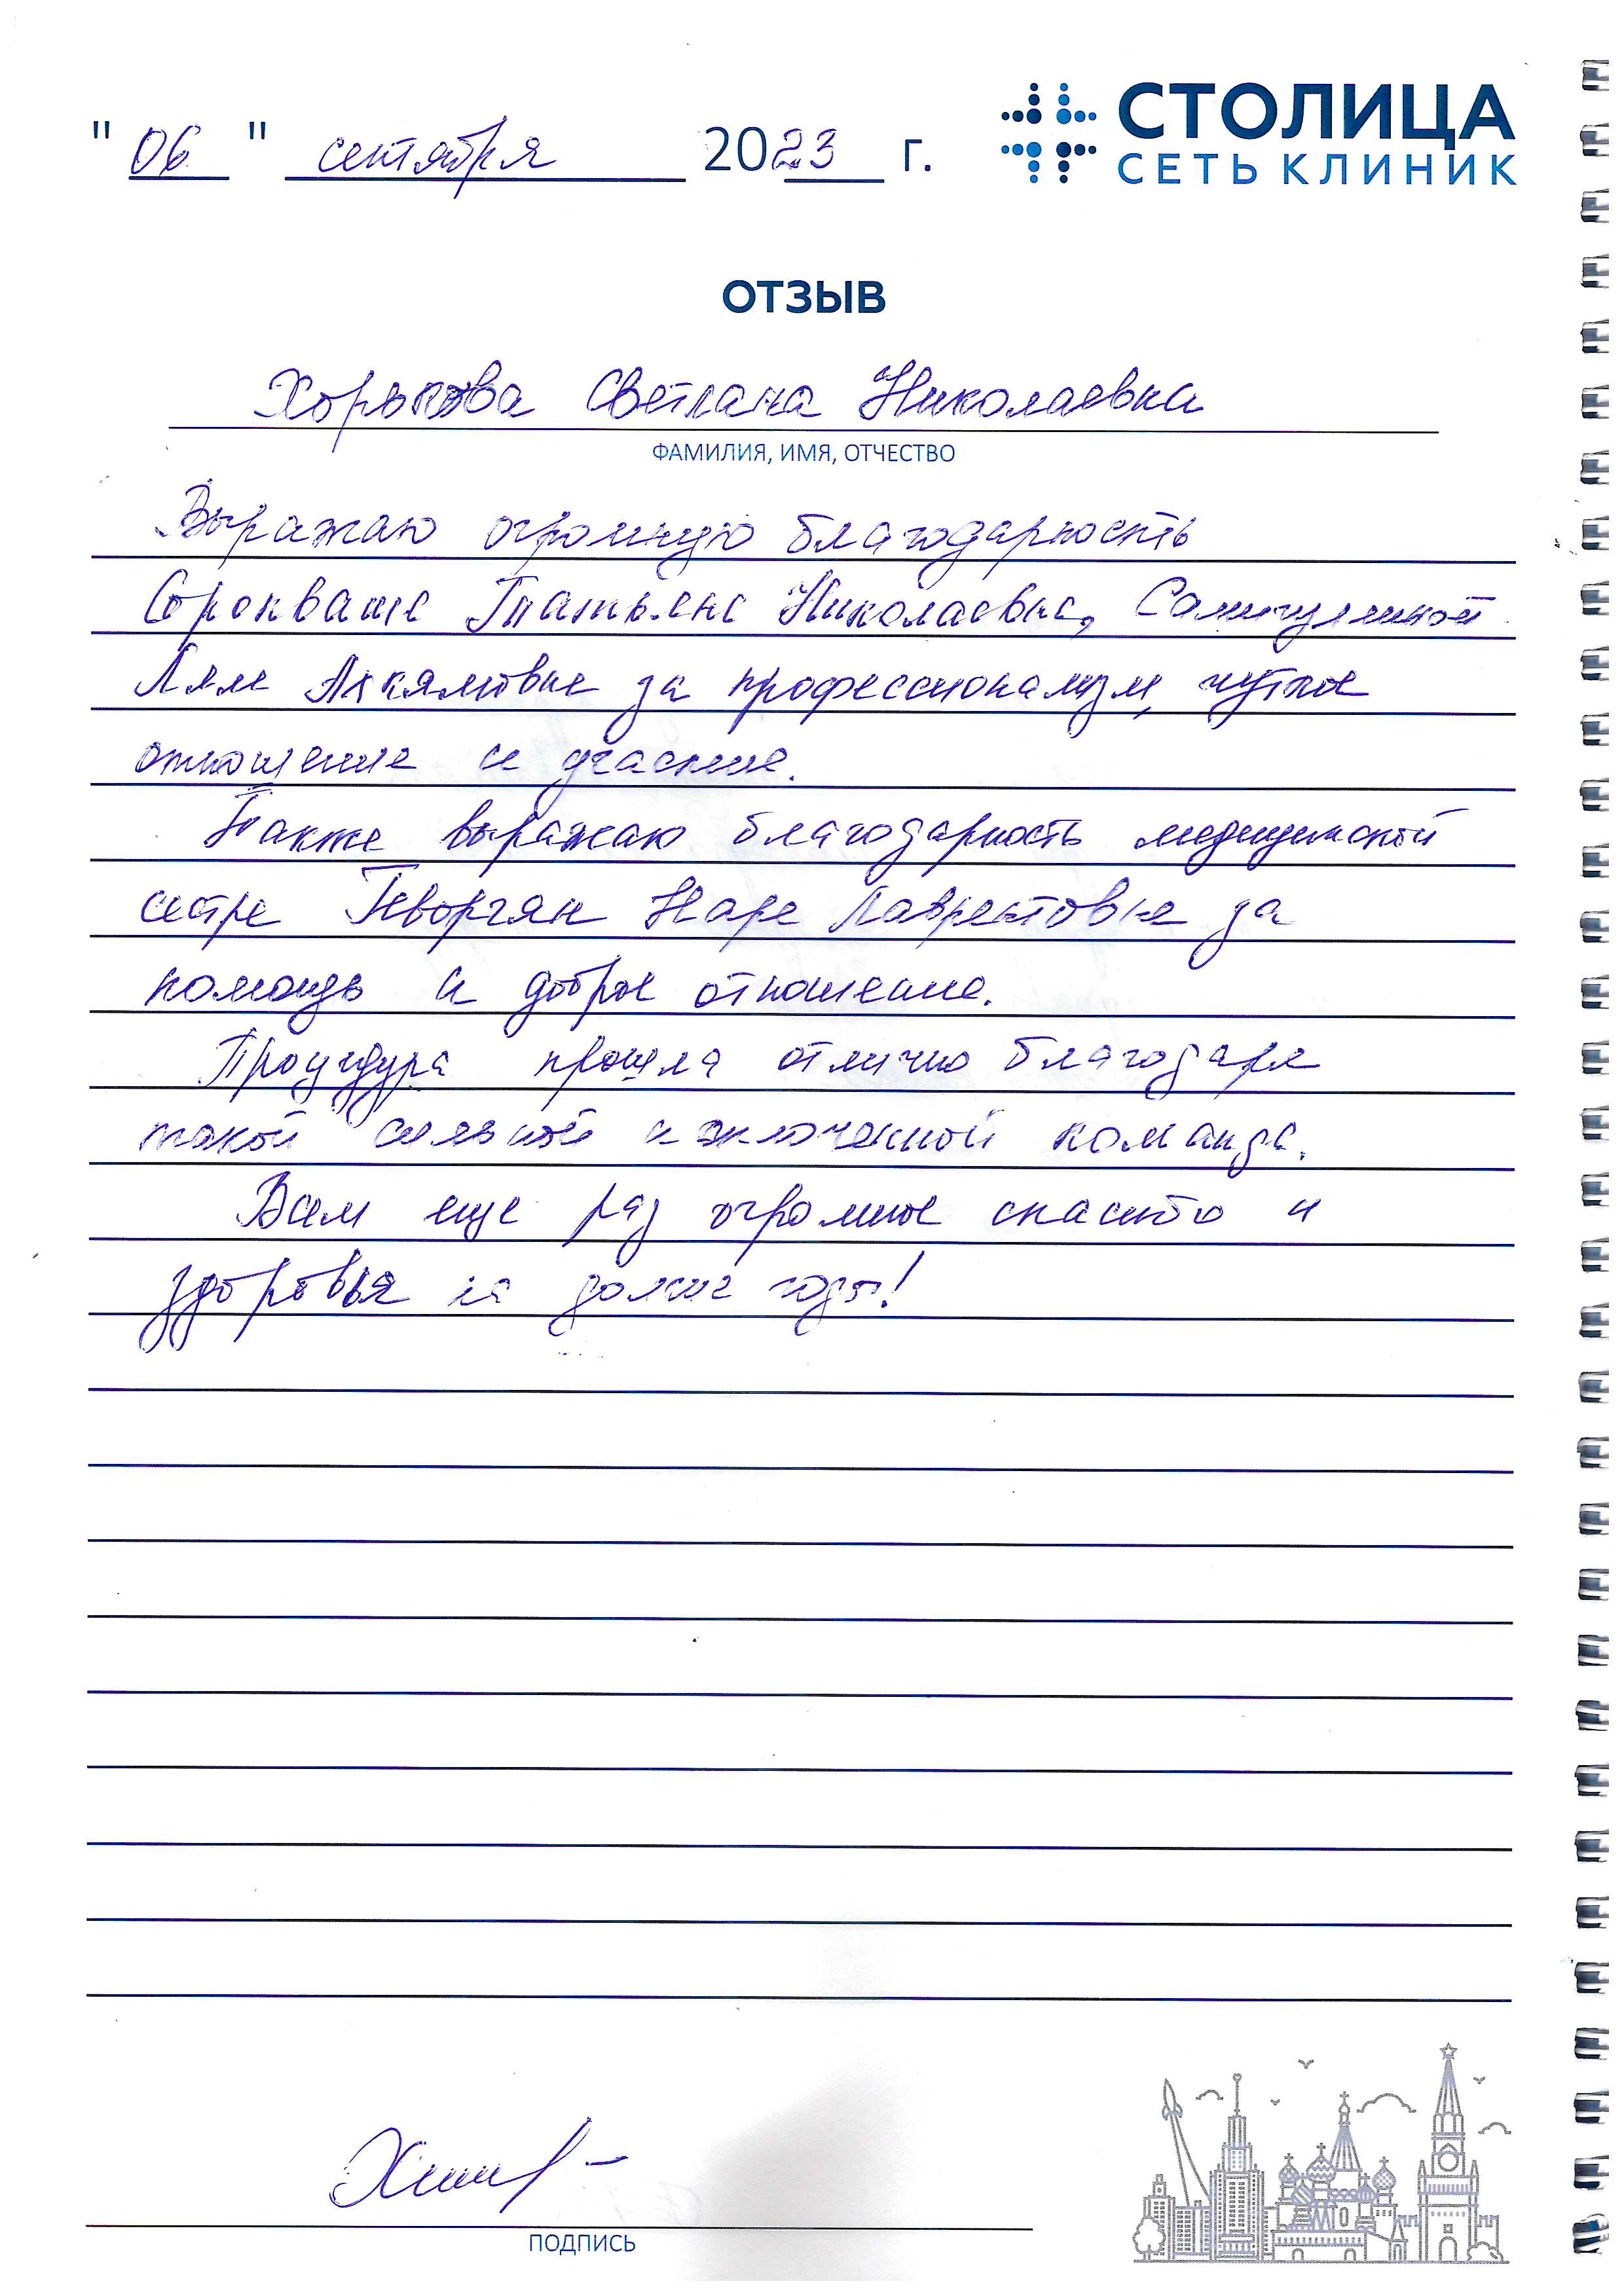 "06" сентября 2023 г.
СТОЛИЦА
СЕТЬ КЛИНИК
ОТЗЫВ
Хорькова Светлана Николаевна
ФАМИЛИЯ, ИМЯ, ОТЧЕСТВО
Выражаю огромную благодарность
Татьяне Николаевне, Самигуллиной
Ляле за профессионализм, чуткое
отношение и участие.
Также выражаю благодарность медицинской
сестре Геворгян Наре Лаврентовне за
помощь и доброе отношение.
Процедура прошла отлично благодаря
такой команде.
Вам еще раз огромное спасибо и
здоровья на долгие годы!
ПОДПИСЬ